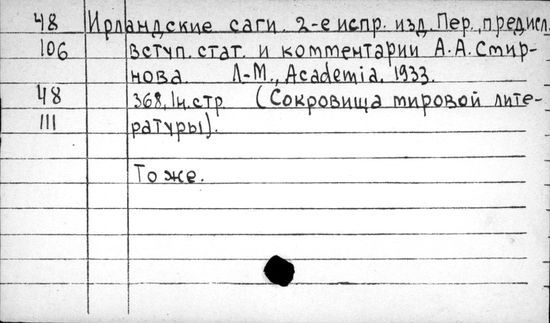 48 Ирландские саги. 2-е испр. изд. Пер., предисл.
106 вступ. стат. и комментарии А.А. Смир-
нова. Л-М., Academia, 1933.
48 368, 1н.стр (Сокровища мировой лите-
111 ратуры).
То же.